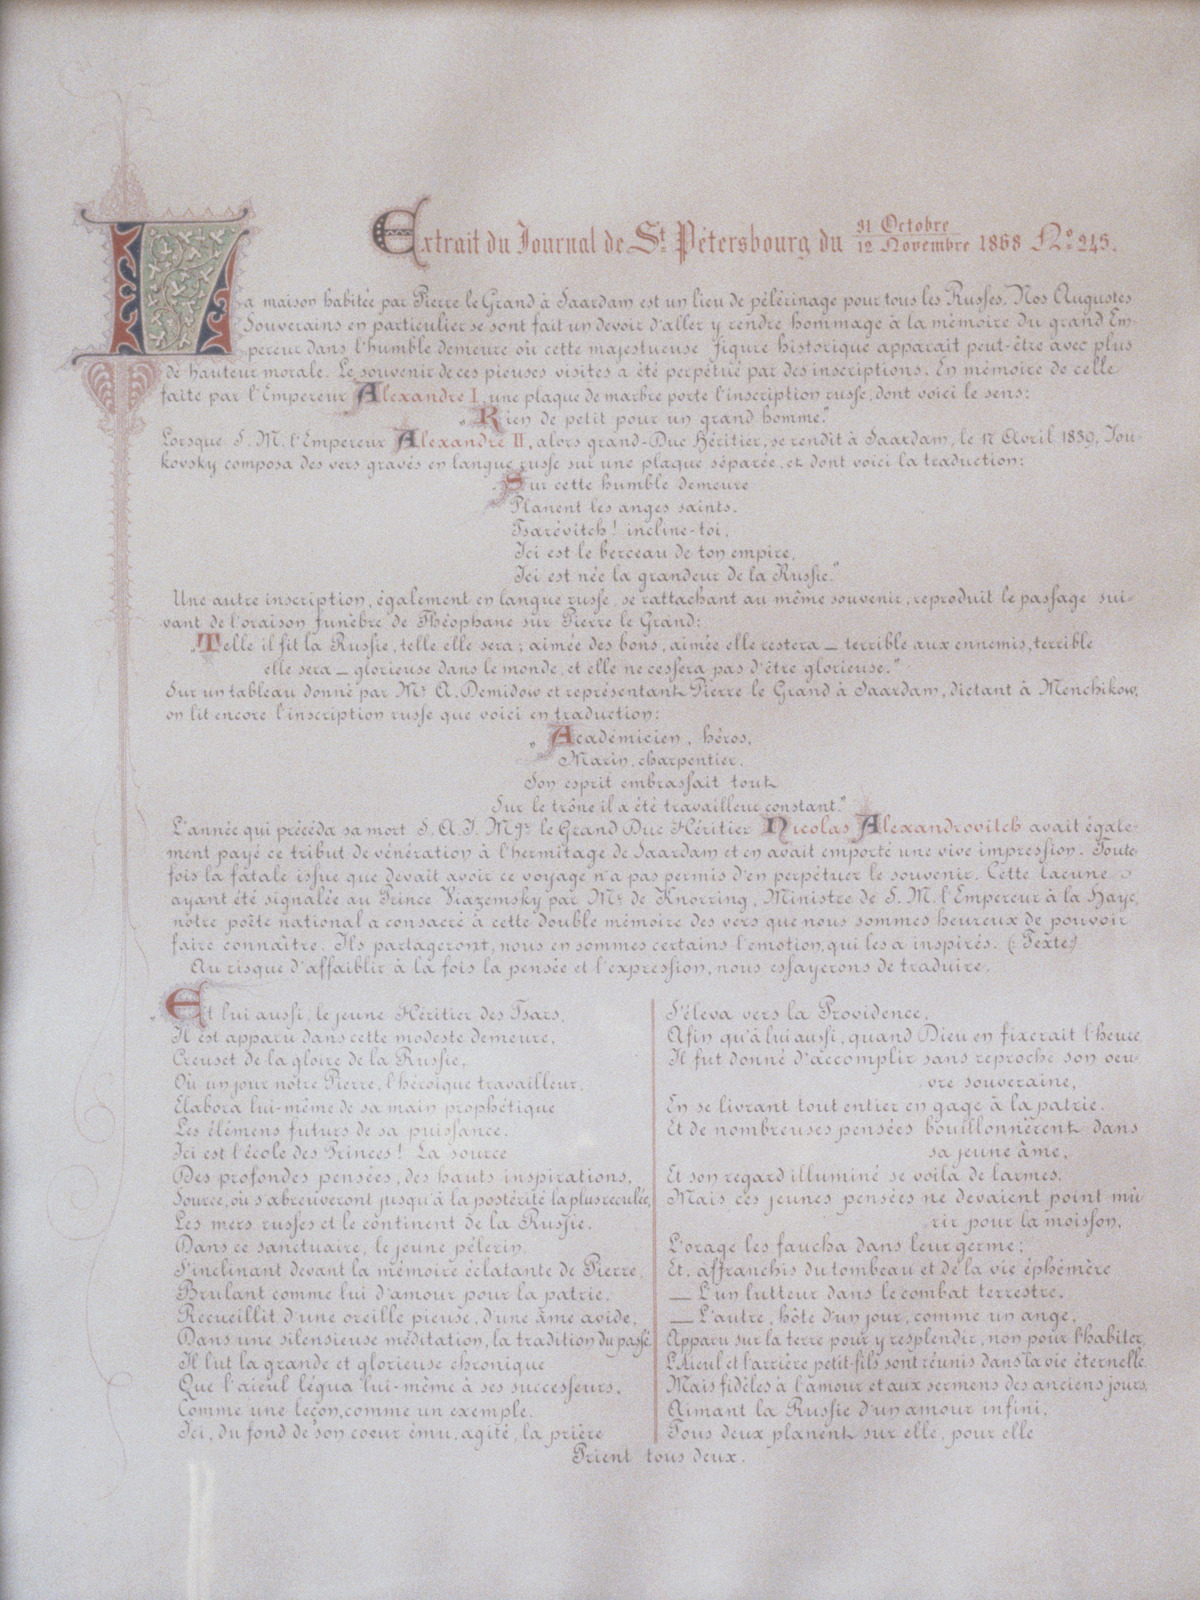 Extrait du Journal de St. Pétersbourg du 31 Octobre / 12 Novembre 1868 No. 245.
La maison habitée par Pierre le Grand à Saardam est un lieu de pélérinage pour tous les Russes. Nos Augustes
Souverains en particulier se sont fait un devoir d'aller y rendre hommage à la mémoire du grand Em-
pereur dans l'humble demeure où cette majestueuse figure historique apparait peut-être avec plus
de hauteur morale. Le souvenir de ces pieuses visites a été perpétué par des inscriptions. En mémoire de celle
faite par l'Empereur Alexandre I, une plaque de marbre porte l'inscription russe, dont voici le sens:
„Rien de petit pour un grand homme."
Lorsque S. M. l'Empereur Alexandre II, alors grand-Duc Héritier, se rendit à Saardam, le 17 Avril 1839, Jou-
kovsky composa des vers gravés en langue russe sur une plaque séparée, et dont voici la traduction:
„Sur cette humble demeure
Planent les anges saints.
Tsarévitch! incline-toi,
Ici est le berceau de ton empire,
Ici est née la grandeur de la Russie."
Une autre inscription, également en langue russe, se rattachant au même souvenir, reproduit le passage sui-
vant de l'oraison funèbre de Théophane sur Pierre le Grand:
„Telle il fit la Russie, telle elle sera; aimée des bons, aimée elle restera — terrible aux ennemis, terrible
elle sera — glorieuse dans le monde, et elle ne cessera pas d'être glorieuse."
Sur un tableau donné par Mr. A. Demidow et représentant Pierre le Grand à Saardam, dictant à Menchikow,
on lit encore l'inscription russe que voici en traduction:
„Académicien, héros,
Marin, charpentier,
Son esprit embrassait tout
Sur le trône il a été travailleur constant."
L'année qui précéda sa mort S. A. I. Mgr. le Grand Duc Héritier Nicolas Alexandrovitch avait égale-
ment payé ce tribut de vénération à l'hermitage de Saardam et en avait emporté une vive impression. Toute-
fois la fatale issue que devait avoir ce voyage n'a pas permis d'en perpétuer le souvenir. Cette lacune
ayant été signalée au Prince Viazemsky par Mr. de Knorring, Ministre de S. M. l'Empereur à la Haye,
nôtre poëte national a consacré à cette double mémoire des vers que nous sommes heureux de pouvoir
faire connaître. Ils partageront, nous en sommes certains l'emotion, qui les a inspirés. (Texte)
Au risque d'affaiblir à la fois la pensée et l'expression, nous essayerons de traduire.
„Et lui aussi, le jeune Héritier des Tsars,
Il est apparu dans cette modeste demeure,
Creuset de la gloire de la Russie,
Où un jour nôtre Pierre, l'héroïque travailleur,
Élabora lui-même de sa main prophétique
Les élémens futurs de sa puissance.
Ici est l'école des Princes! La source
Des profondes pensées, des hauts inspirations,
Source, où s'abreuveront jusqu'à la postérité la plus reculée,
Les mers russes et le continent de la Russie.
Dans ce sanctuaire, le jeune pélerin,
S'inclinant devant la mémoire éclatante de Pierre,
Brulant comme lui d'amour pour la patrie,
Recueillit d'une oreille pieuse, d'une âme avide,
Dans une silensieuse méditation, la tradition du passé.
Il lut la grande et glorieuse chronique
Que l'aieul légua lui-même à ses successeurs,
Comme une leçon, comme un exemple.
Ici, du fond de son coeur ému, agité, la prière
S'éleva vers la Providence,
Afin qu'à lui aussi, quand Dieu en fixerait l'heure,
Il fut donné d'accomplir sans reproche son oeu-
vre souveraine,
En se livrant tout entier en gage à la patrie.
Et de nombreuses pensées bouillonnèrent dans
sa jeune âme,
Et son regard illuminé se voila de larmes.
Mais ces jeunes pensées ne devaient point mû-
rir pour la moisson,
L'orage les faucha dans leur germe;
Et, affranchis du tombeau et de la vie éphémère
— L'un lutteur dans le combat terrestre,
— L'autre, hôte d'un jour, comme un ange,
Apparu sur la terre pour y resplendir, non pour l'habiter,
L'Aieul et l'arrière petit-fils sont réunis dans la vie éternelle.
Mais fidèles à l'amour et aux sermens des anciens jours,
Aimant la Russie d'un amour infini,
Tous deux planent sur elle, pour elle
Prient tous deux.